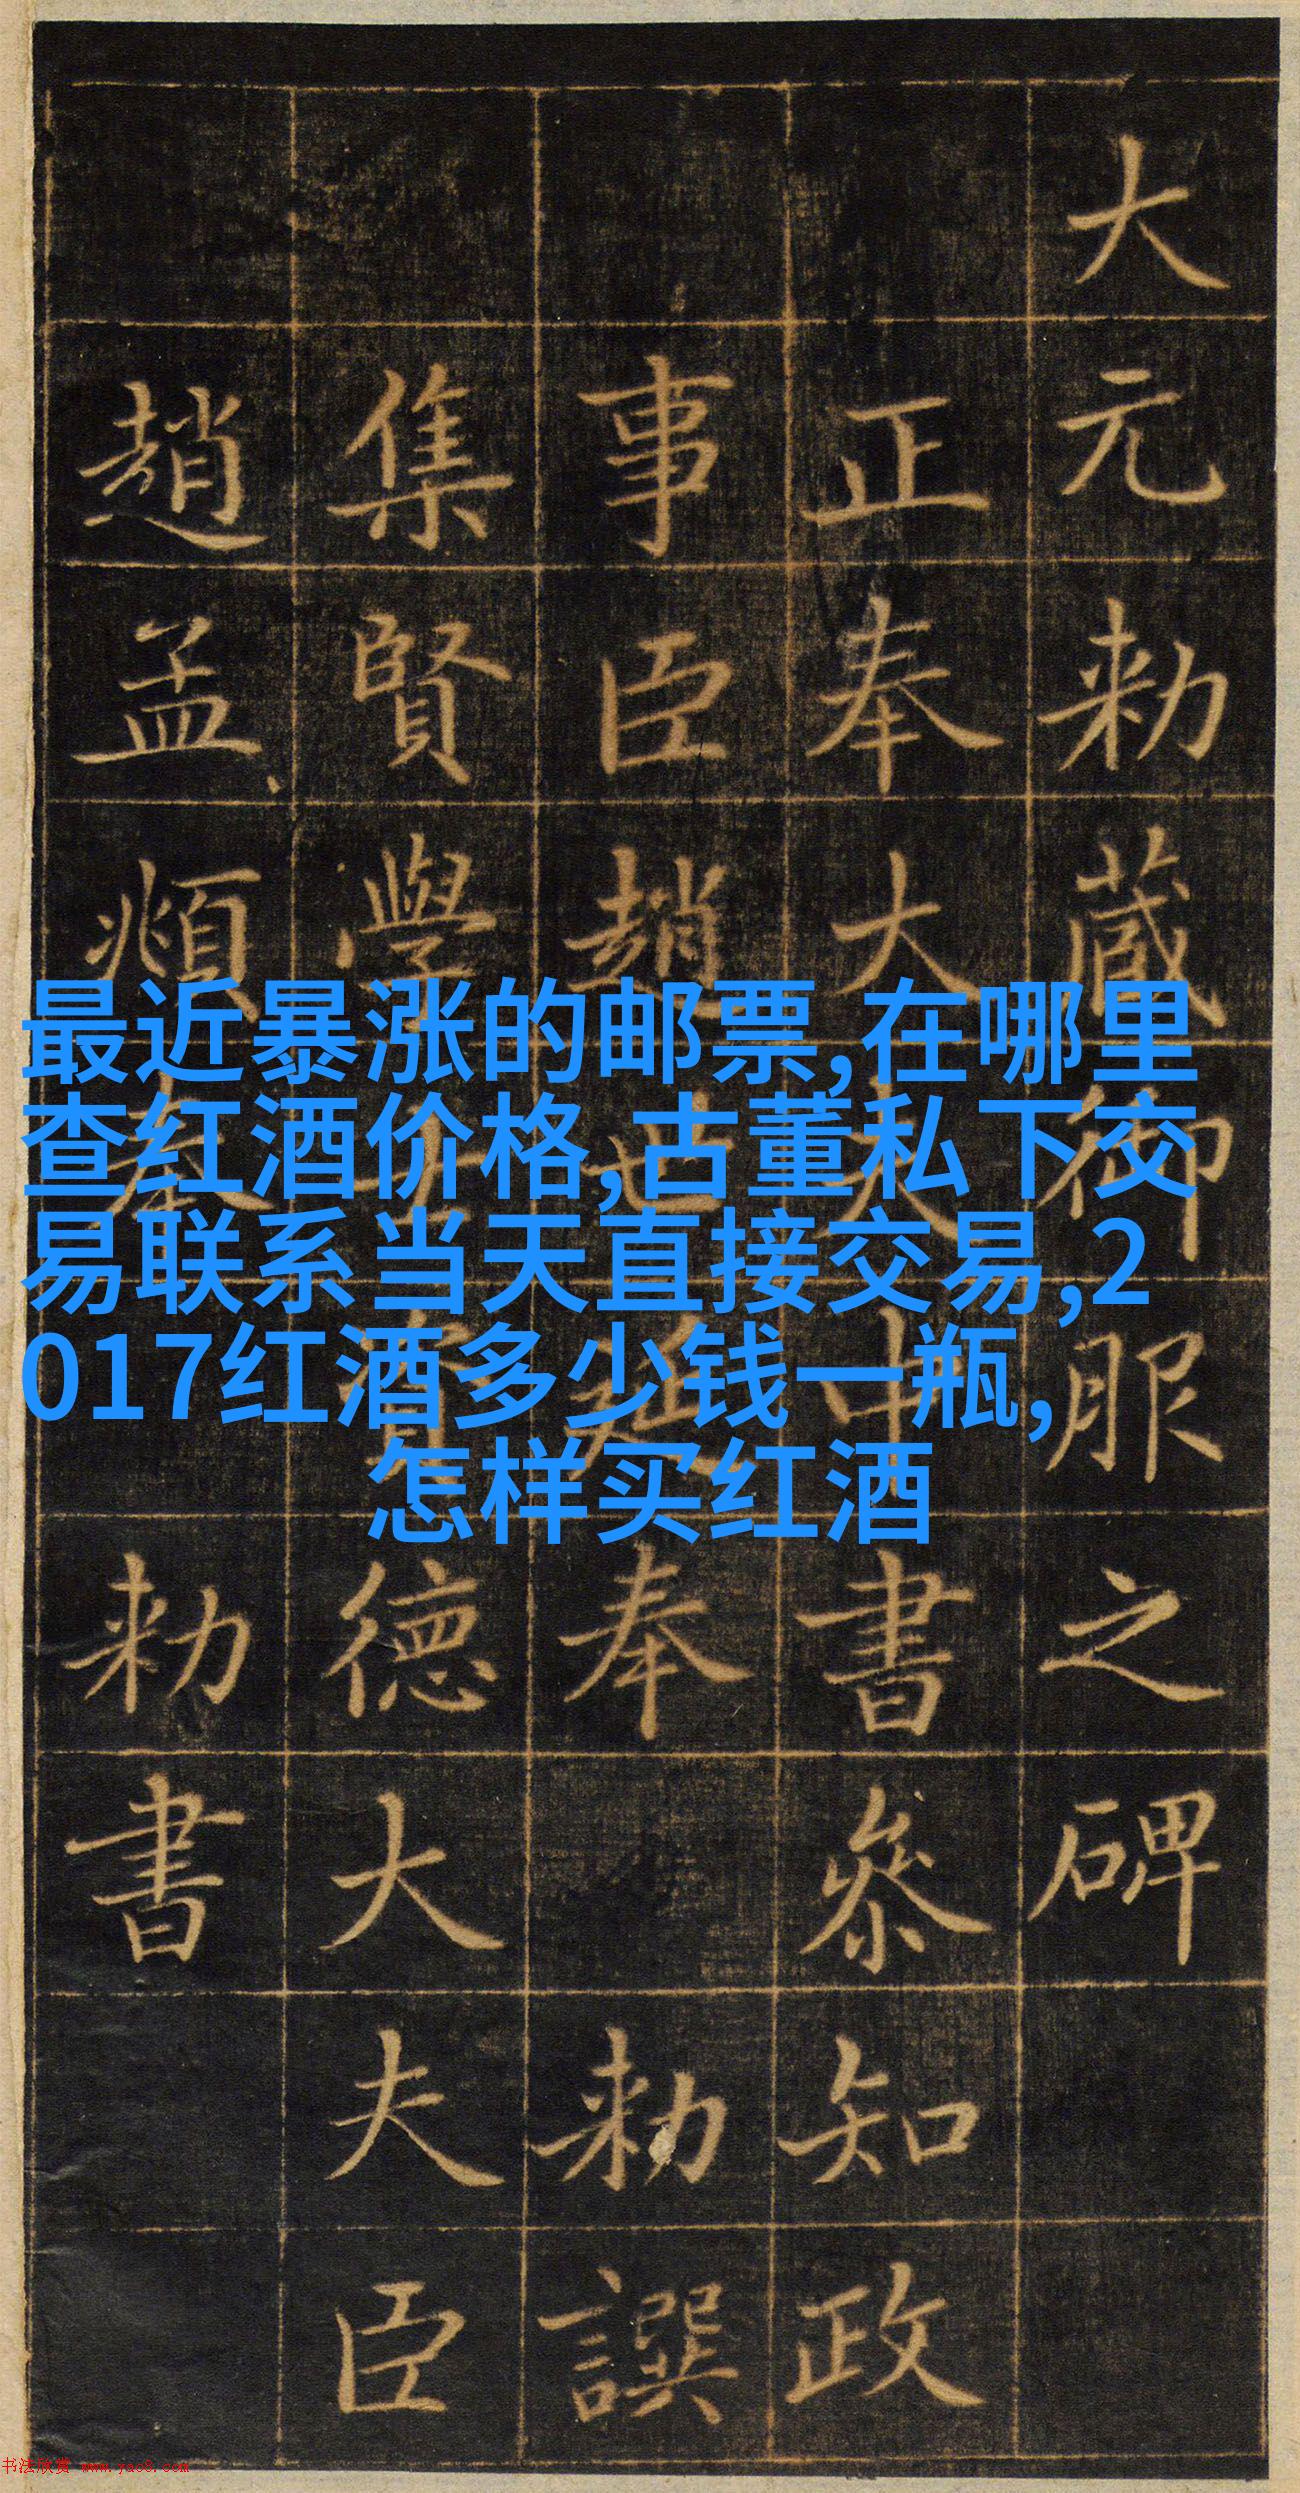 大元勅藏御服之碑
正奉大夫中書參知政
事臣趙世延奉 勅譔
集賢學士資德大夫臣
趙孟頫奉 勅書
最近暴涨的邮票,在哪里
查红酒价格,古董私下交
易联系当天直接交易,2
017红酒多少钱一瓶,
怎样买红酒
书法欣赏 www.yac8.com